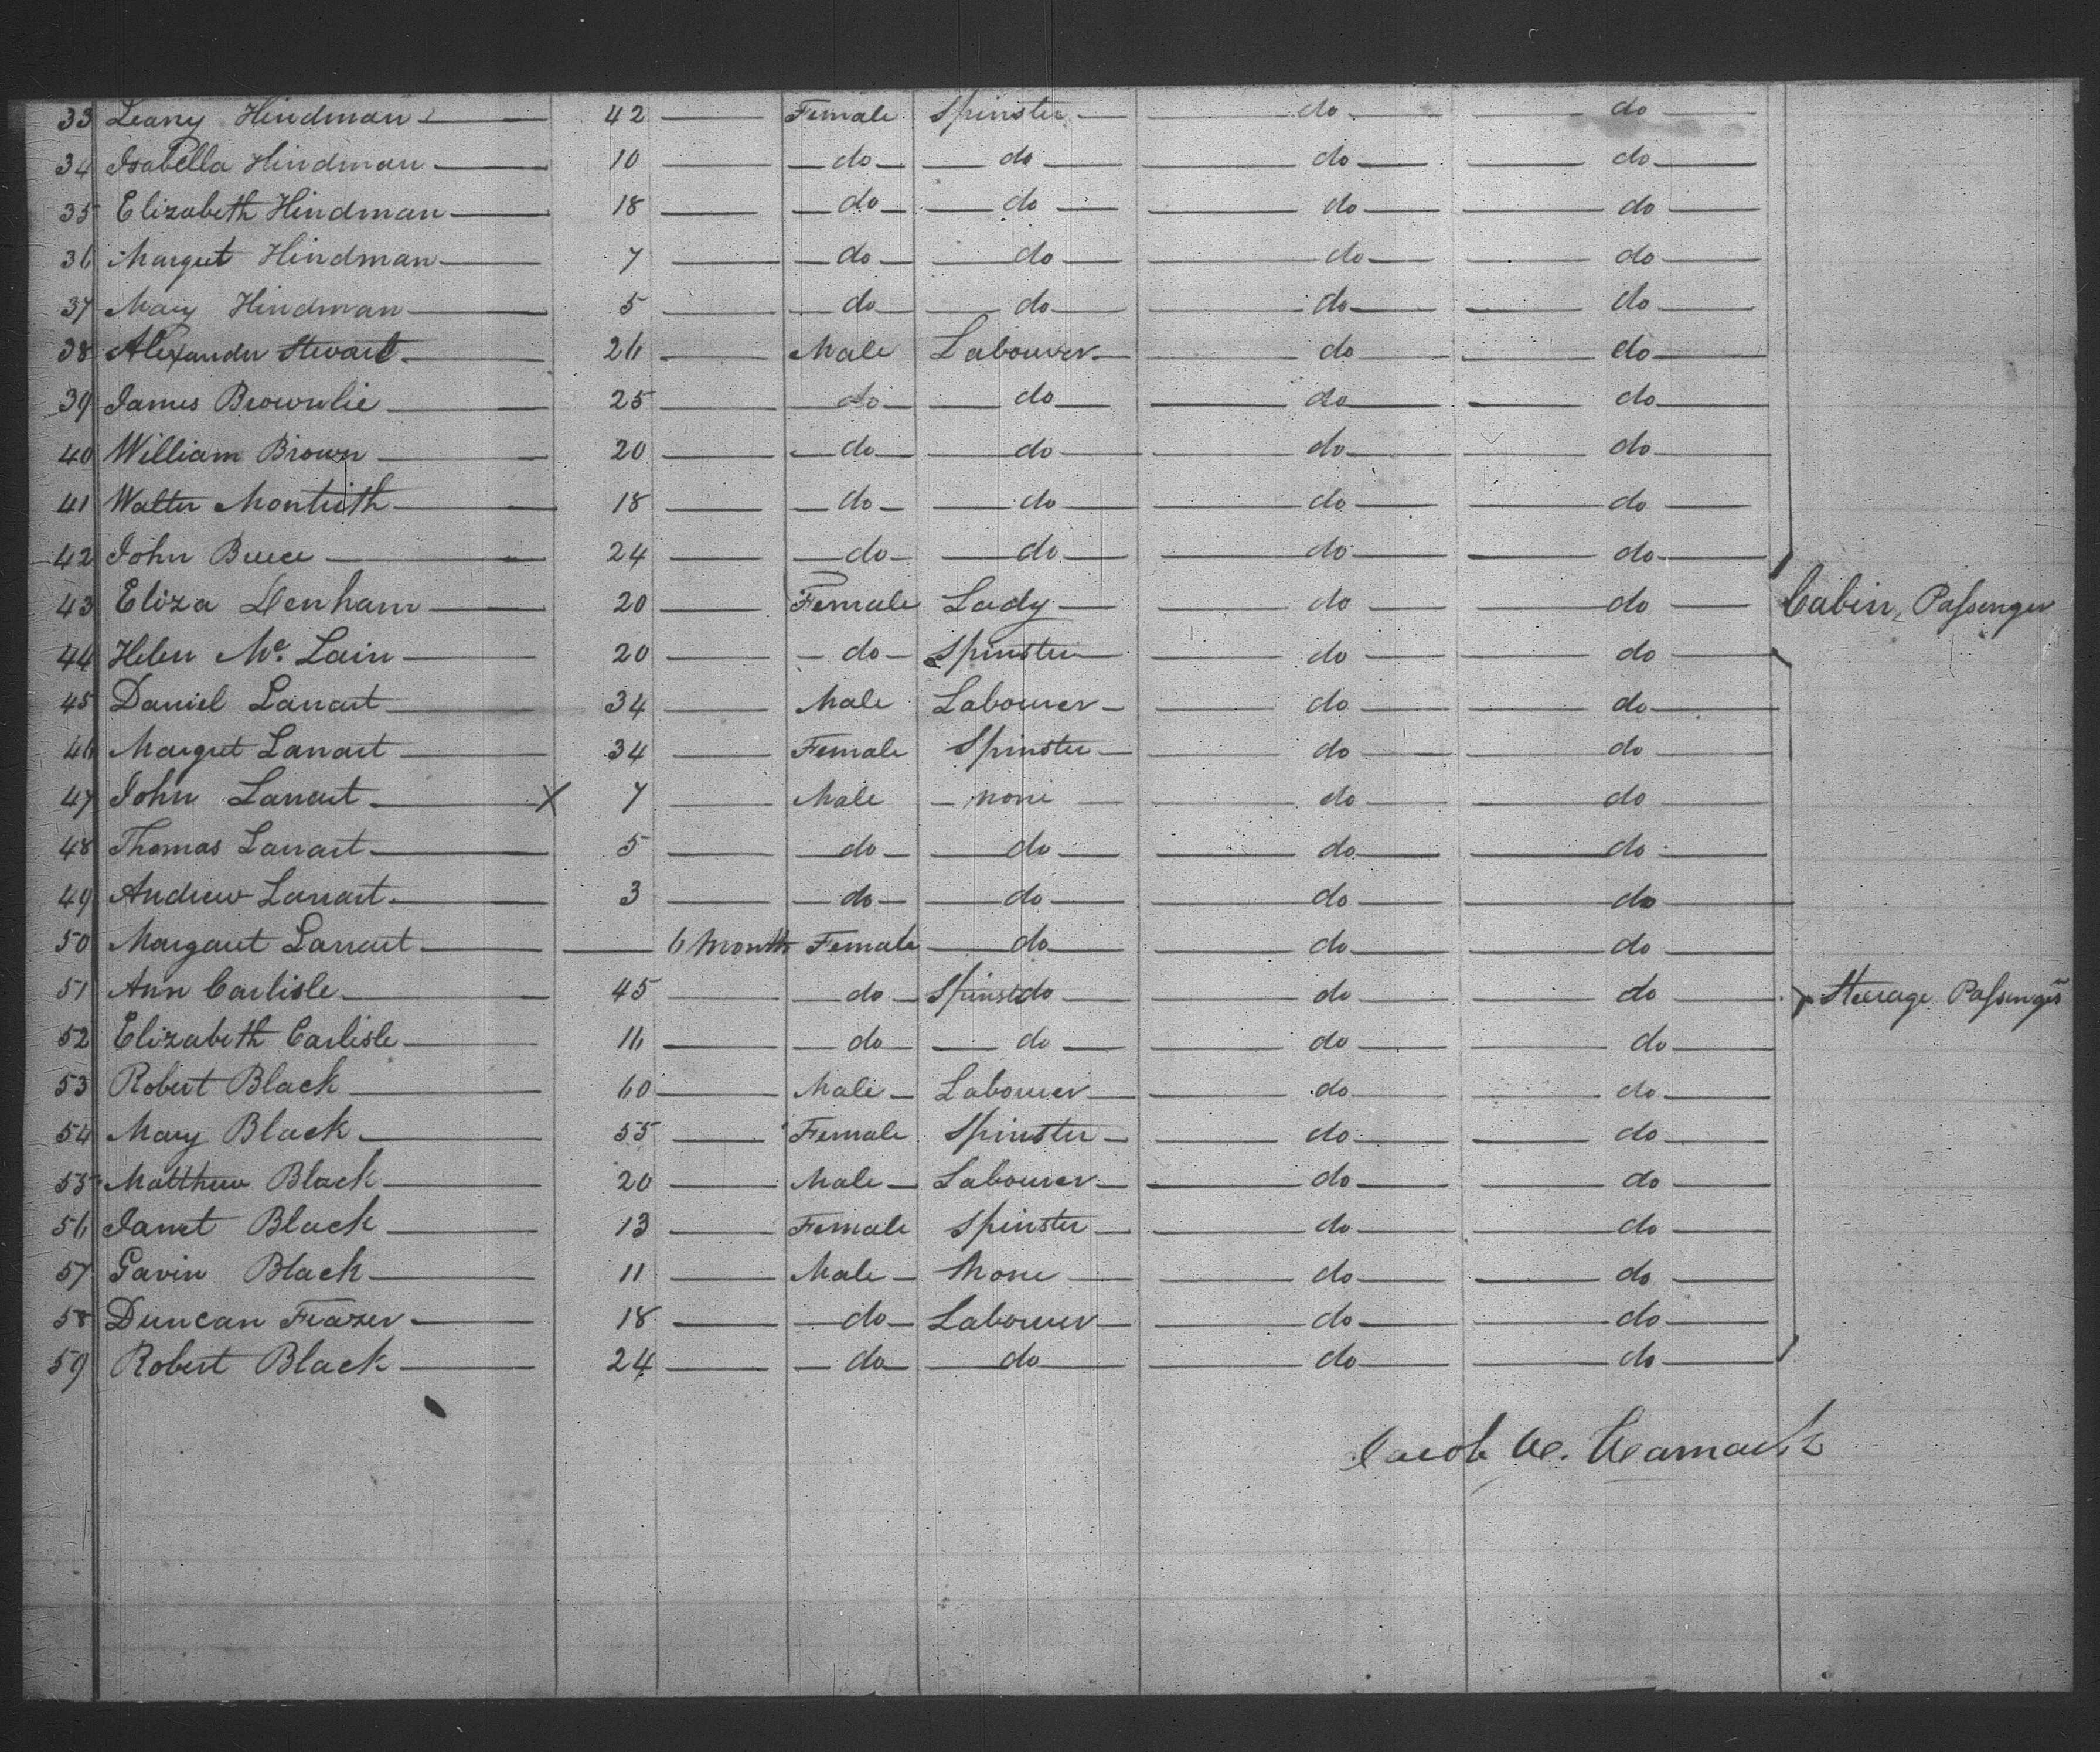 33 Leany Hindman 42 Female Spinster do do
34 Isabella Hindman 10 do do do do
35 Elizabeth Hindman 18 do do do do
36 Margret Hindman 7 do do do do
37 Mary Hindman 5 do do do do
38 Alexander Stewart 26 Male Labourer do do
39 James Brownlie 25 do do do do
40 William Brown 20 do do do do
41 Walter Monteith 18 do do do do
42 John Bruce 24 do do do do
43 Eliza Denham 20 Female Lady do do Cabin Passenger
44 Helen Mc. Lain 20 do Spinster do do
45 Daniel Larrart 34 Male Labourer do do
46 Margret Larrart 34 Female Spinster do do
47 John Larrart X 7 Male none do do
48 Thomas Larrart 5 do do do do
49 Andrew Larrart 3 do do do do
50 Margaret Larrart 6 Month Female do do do
51 Ann Carlisle 45 do Spinst do do do Steerage Passengers
52 Elizabeth Carlisle 16 do do do do
53 Robert Black 60 Male Labourer do do
54 Mary Black 55 Female Spinster do do
55 Matthew Black 20 Male Labourer do do
56 Janet Black 13 Female Spinster do do
57 Gavin Black 11 Male None do do
58 Duncan Frazer 18 do Labourer do do
59 Robert Black 24 do do do do
Jacob W.